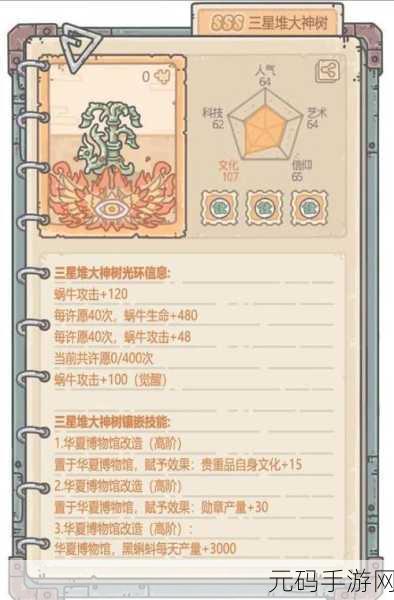 SSS 三星堆大神树
0
人气
64
科技
62
艺术
64
文化
107
信仰
65
三星堆大神树光环信息:
蜗牛攻击+120
每许愿40次，蜗牛生命+480
每许愿40次，蜗牛攻击+48
当前共许愿0/400次
蜗牛攻击+100（觉醒）
三星堆大神树镶嵌技能:
1.华夏博物馆改造（高阶）
置于华夏博物馆，赋予效果：贵重品自身文化+15
2.华夏博物馆改造（高阶）
置于华夏博物馆，赋予效果：勋章产量+30
3.华夏博物馆改造（高阶）:
华夏博物馆，黑蝌蚪每天产量+3000
元码手游网